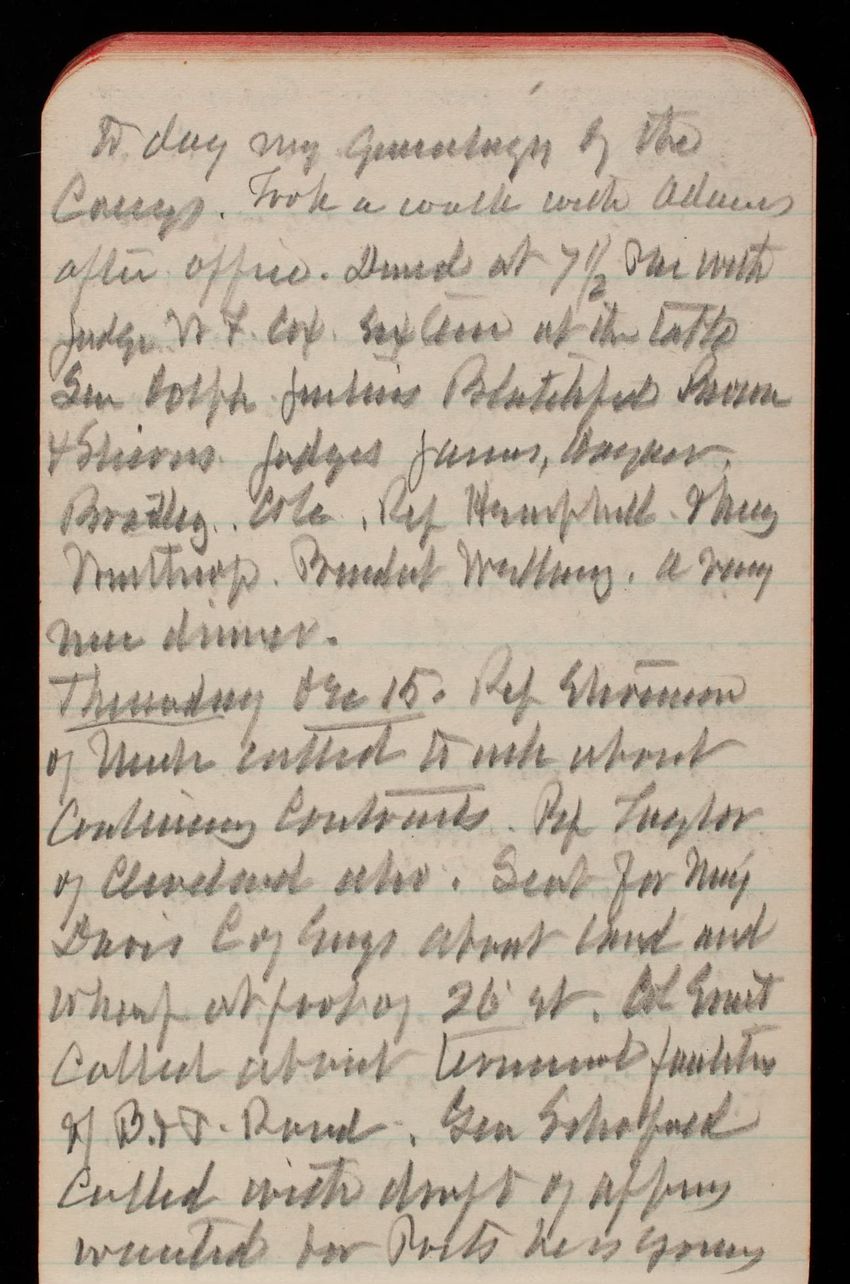 to day my Genealogy of the
Caseys. Took a walk with Adams
after office. Dined at 7 1/2 P.M. with
Judge W S. Cox. Sixteen at the table
Gen Dolph Justices Blatchford Brown
& Shiras. Judges James, Wagner,
Bradley. Cole. Rep Hemphill.
Winthrop. President Welling. A very
nice dinner.
Thursday Dec 15. Rep
of called to ask about
Continuing Contracts. Rep Taylor
of Cleveland also. Sent for Maj
Davis C of Engs about land and
wharf at foot of 26 st. Col Ernst
Called about terminal facilities
of B. & P. Road. Gen Schofield
Called with draft of
wanted for Posts he is